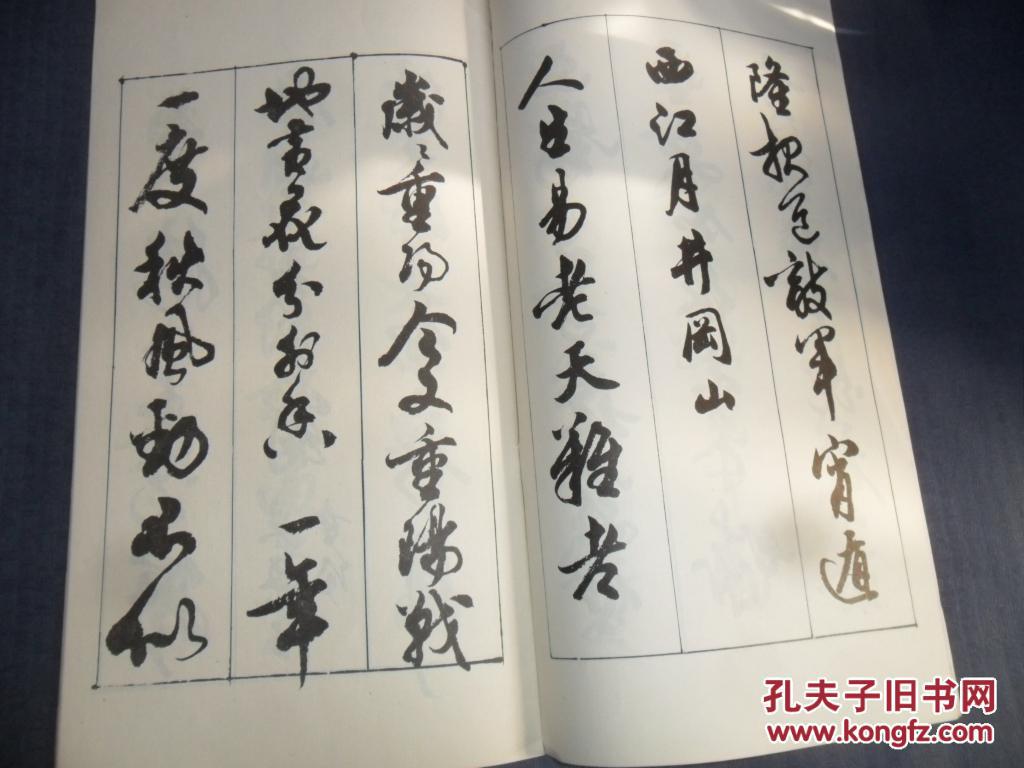 隆报道敌军宵遁
西江月井冈山
人生易老天难老
岁岁重阳今又重阳战
地黄花分外香一年
一度秋风劲不似
孔夫子旧书网
www.kongfz.com